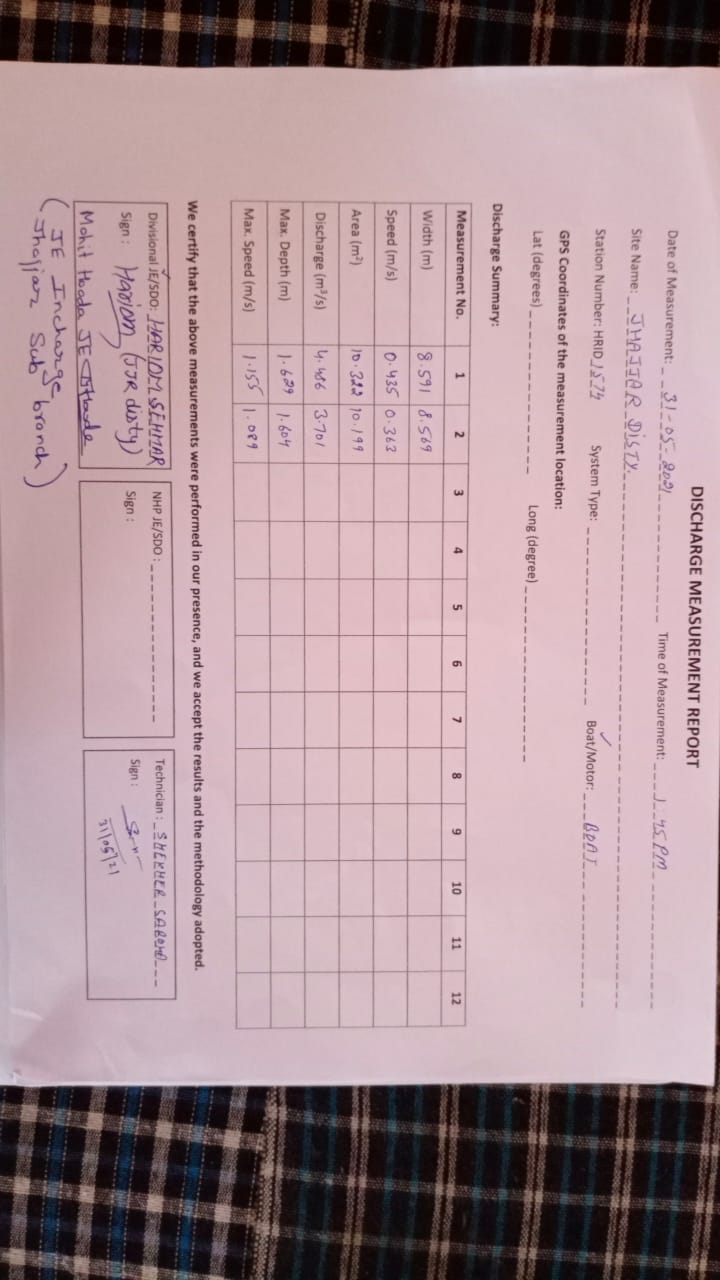 DISCHARGE MEASUREMENT REPORT
Date of Measurement: 31-05-2021 Time of Measurement: 1:45 PM
Site Name: JHAJJAR DISTY.
Station Number: HRID 1574 System Type: Boat/Motor: BOAT
GPS Coordinates of the measurement location:
Lat (degrees) Long (degree)
Discharge Summary:
Measurement No. 1 2 3 4 5 6 7 8 9 10 11 12
Width (m) 8.591 8.569
Speed (m/s) 0.435 0.363
Area (m²) 10.322 10.199
Discharge (m³/s) 4.486 3.701
Max. Depth (m) 1.629 1.604
Max. Speed (m/s) 1.155 1.089
We certify that the above measurements were performed in our presence, and we accept the results and the methodology adopted.
Divisional JE/SDO: HARIOM SEHMAR
Sign: Hariom (JJR disty)
Mohit Hooda JE
(JE Incharge
Jhajjar Sub branch)
NHP JE/SDO:
Sign:
Technician: SHEKHER
Sign:
31/05/21